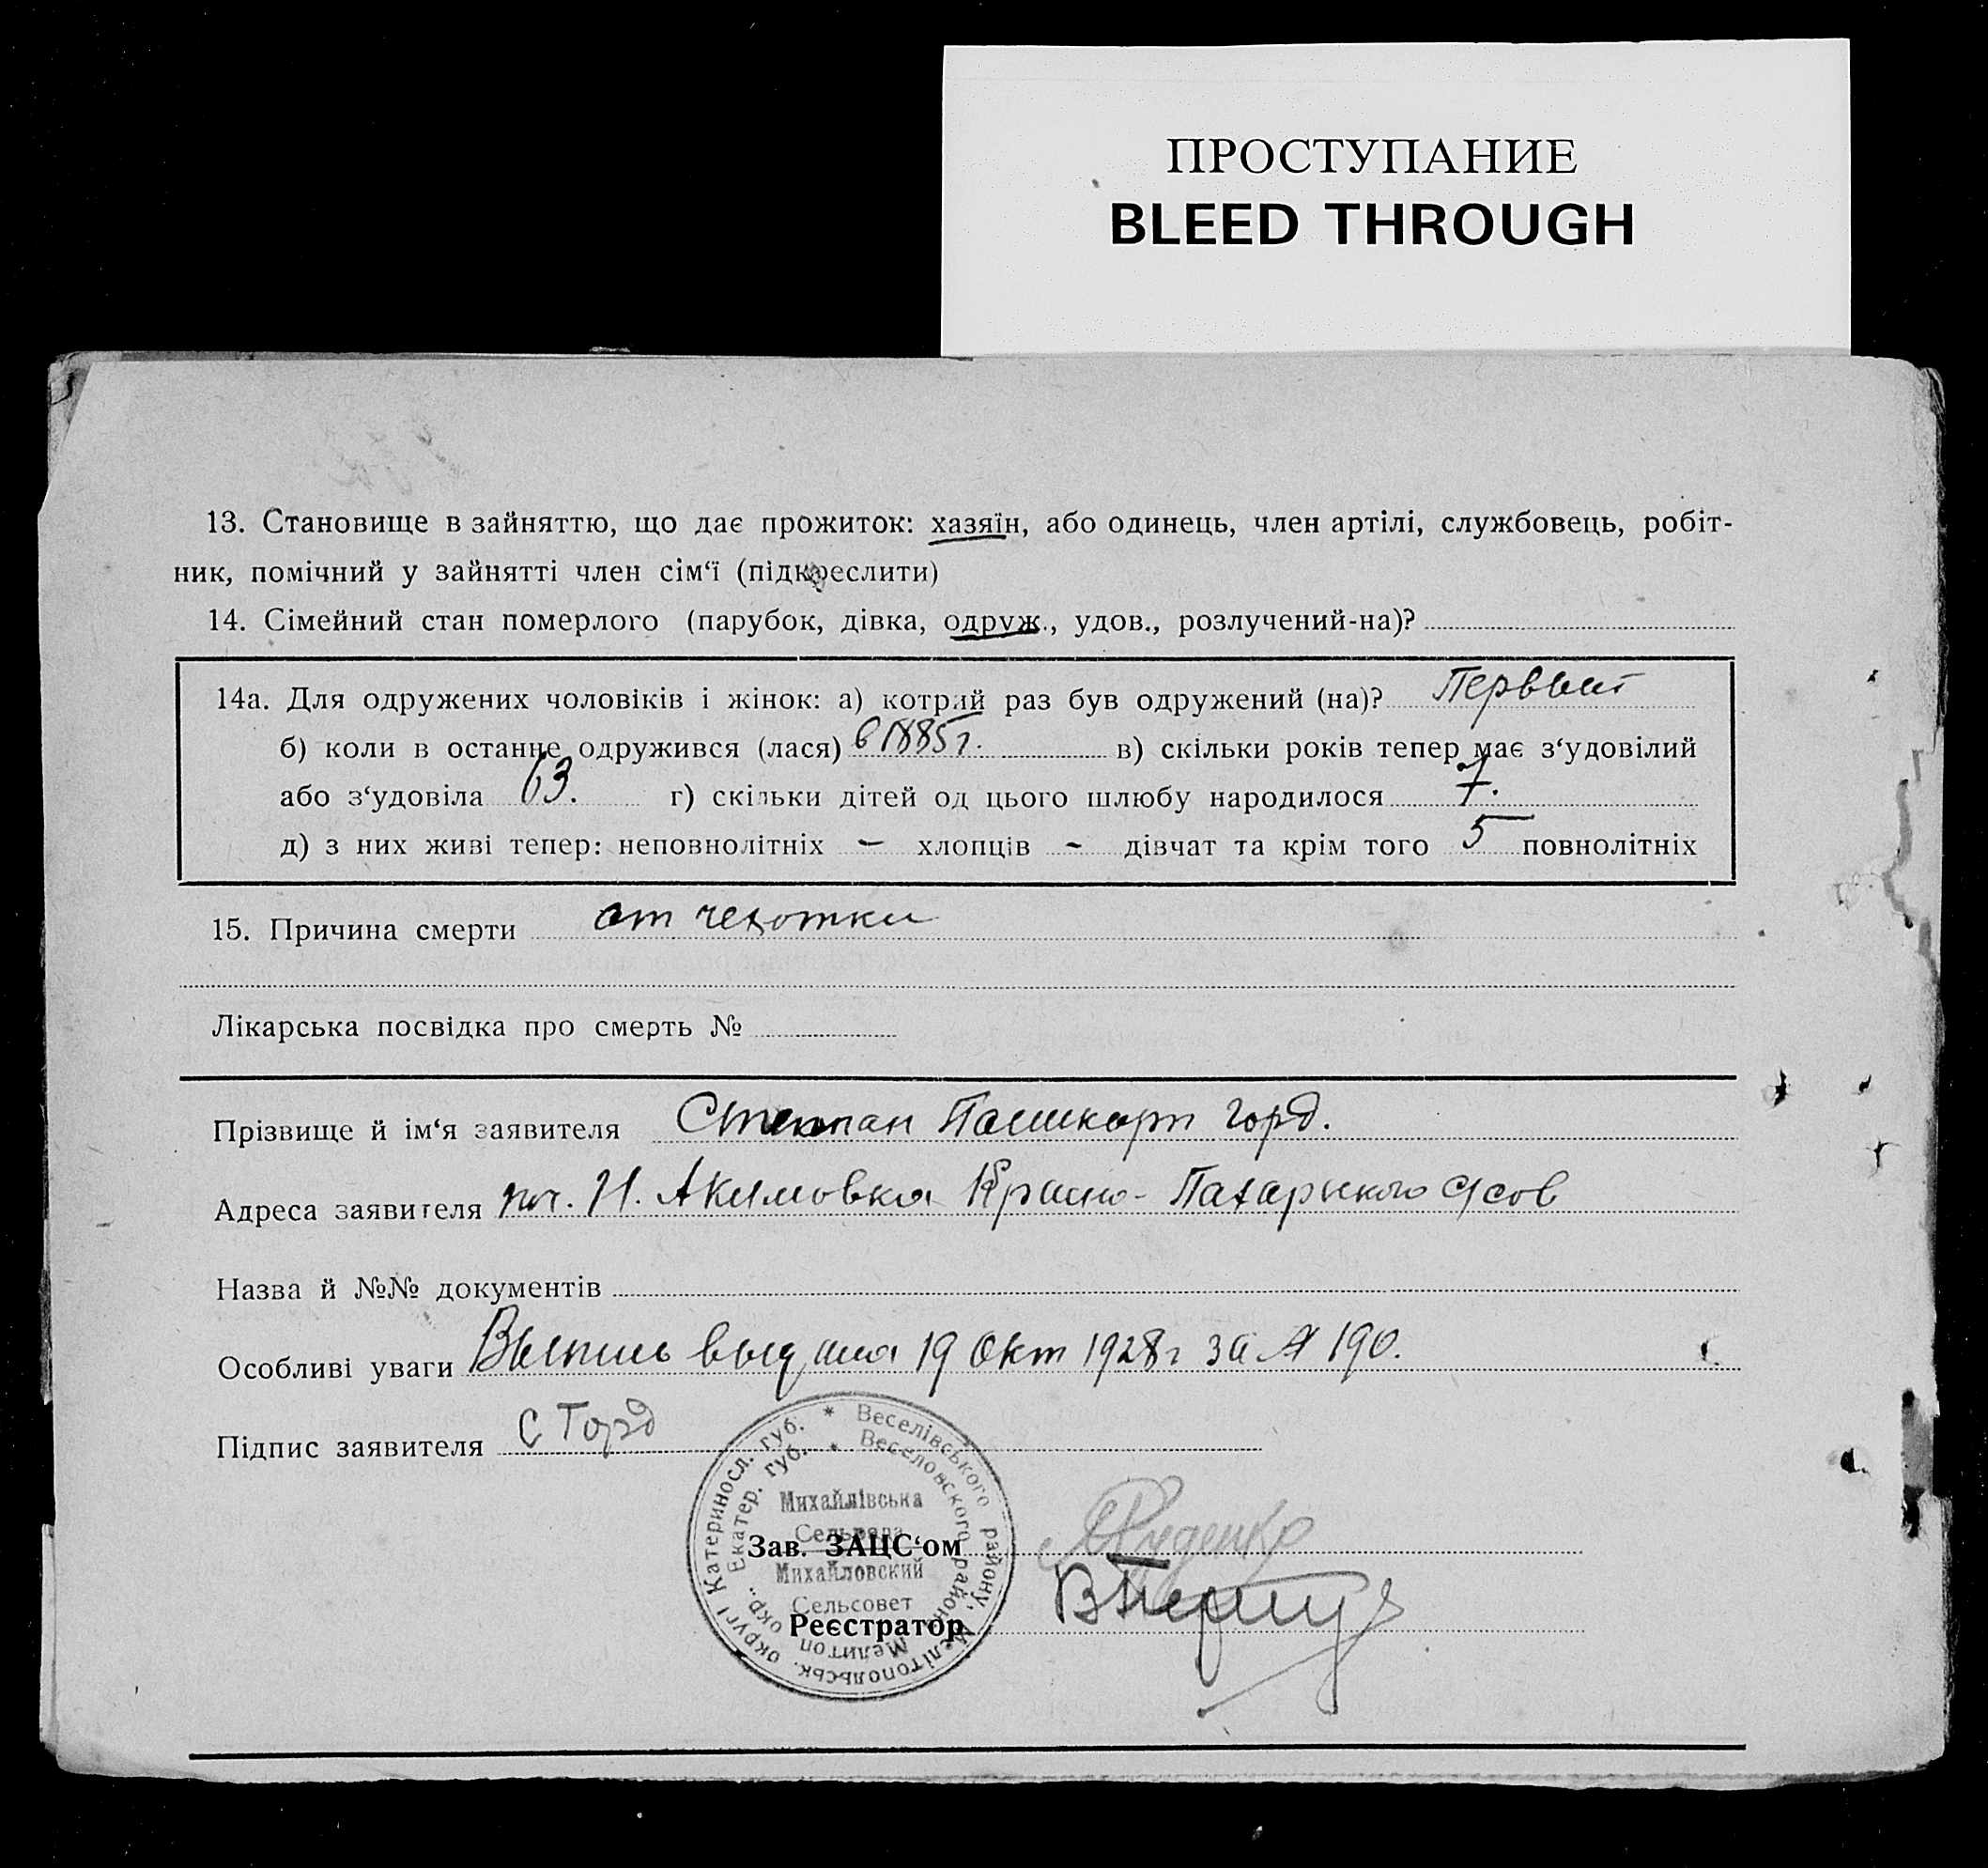 ПРОСТУПАНИЕ
BLEED THROUGH
13. Становище в зайняттю, що дає прожиток: хазяїн, або одинець, член артілі, службовець, робіт-
ник, помічний у зайнятті член сім‘ї (підкреслити)
14. Сімейний стан померлого (парубок, дівка, одруж., удов., розлучений-на)?
14а. Для одружених чоловіків і жінок: а) котрий раз був одружений (на)? Первый
б) коли в останнє одружився (лася) в 1885г. в) скільки років тепер має з‘удовілий
або з‘удовіла 63. г) скільки дітей од цього шлюбу народилося 7.
д) з них живі тепер: неповнолітніх – хлопців - дівчат та крім того 5 повнолітніх
15. Причина смерти от чехотки
Лікарська посвідка про смерть №
Прізвище й ім‘я заявителя Степан горд.
Адреса заявителя Н. Акимовка Красно-
Назва й №№ документів
Особливі уваги Выпись выдана 19 Окт 1928г за № 190.
Підпис заявителя С Горд
* Веселівського району, Мелітопольськ. округі Катериносл. губ.
* Веселовского района Мелитоп окр., Екатер. губ.
Михайлівська
Сельрада
Зав. ЗАЦС‘ом Руденко
Михайловский
Сельсовет
Реєстратор